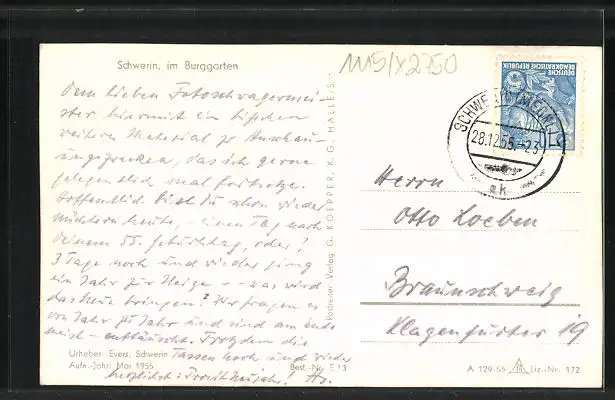 Schwerin, im Burggarten
Dem lieben Fotoschwagermei-
ster hiermit ein bißchen
weiteres Material zu Anschau-
ungszwecken, das ich gerne
gelegentlich mal fortsetze.
Hoffentlich bist du schon wieder
nüchtern heute, - einen Tag nach
deinem 55. Geburtstag, oder?
3 Tage noch und wieder ging
ein Jahr zur Neige - was wird
das Neue bringen? Wir fragen es
von Jahr zu Jahr und sind am Ende
meist - enttäuscht. Trotzdem die
Tassen hoch und wieder
herzlichst: Prosit Neujahr!
Urheber: Evers, Schwerin
Aufn.-Jahr: Mai 1955
Best.-Nr. E 13
Verlag G. KOEPPER, K.G. HALLE/S.
1115/X2750
DEUTSCHE
DEMOKRATISCHE REPUBLIK
SCHWERIN (MECKL) 1
28.12.55.-23
ak
Herrn
Otto Loeben
Braunschweig
Klagenfurter 19
A 129-55 Liz.-Nr. 172